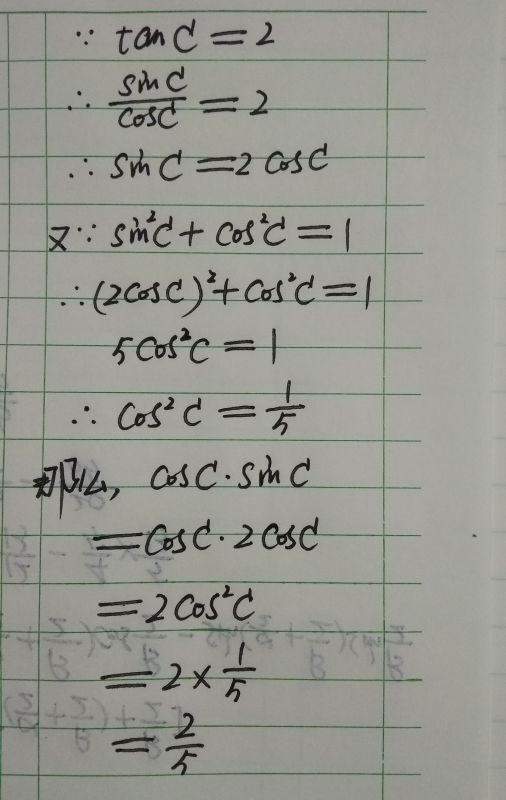 ∵ tanC = 2
∴ sinC/cosC = 2
∴ sinC = 2cosC
又∵ sin²C + cos²C = 1
∴ (2cosC)² + cos²C = 1
5cos²C = 1
∴ cos²C = 1/5
那么, cosC·sinC
= cosC·2cosC
= 2cos²C
= 2×1/5
= 2/5